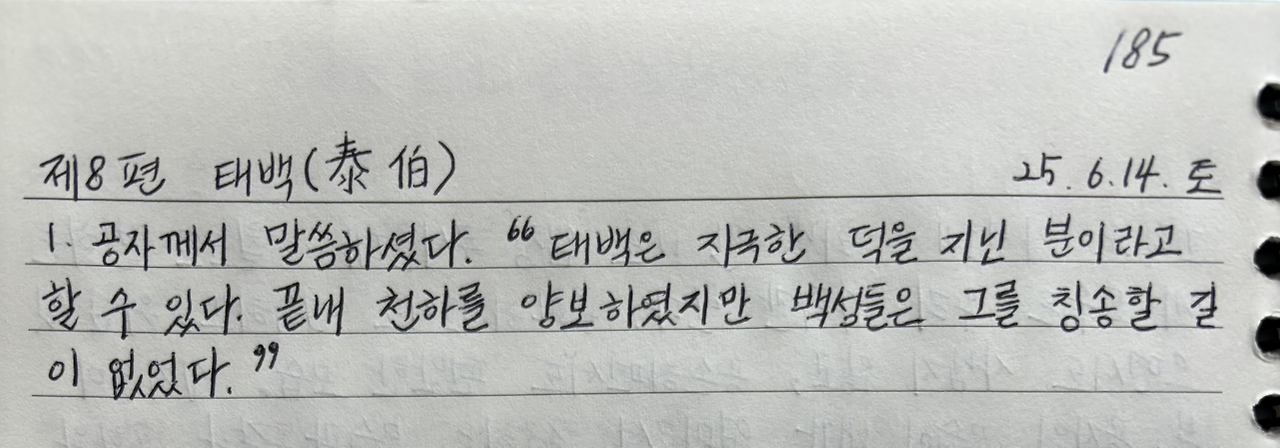 185
제8편 태백(泰伯) 25.6.14. 토
1. 공자께서 말씀하셨다. “태백은 지극한 덕을 지닌 분이라고
할 수 있다. 끝내 천하를 양보하였지만 백성들은 그를 칭송할 길
이 없었다.”